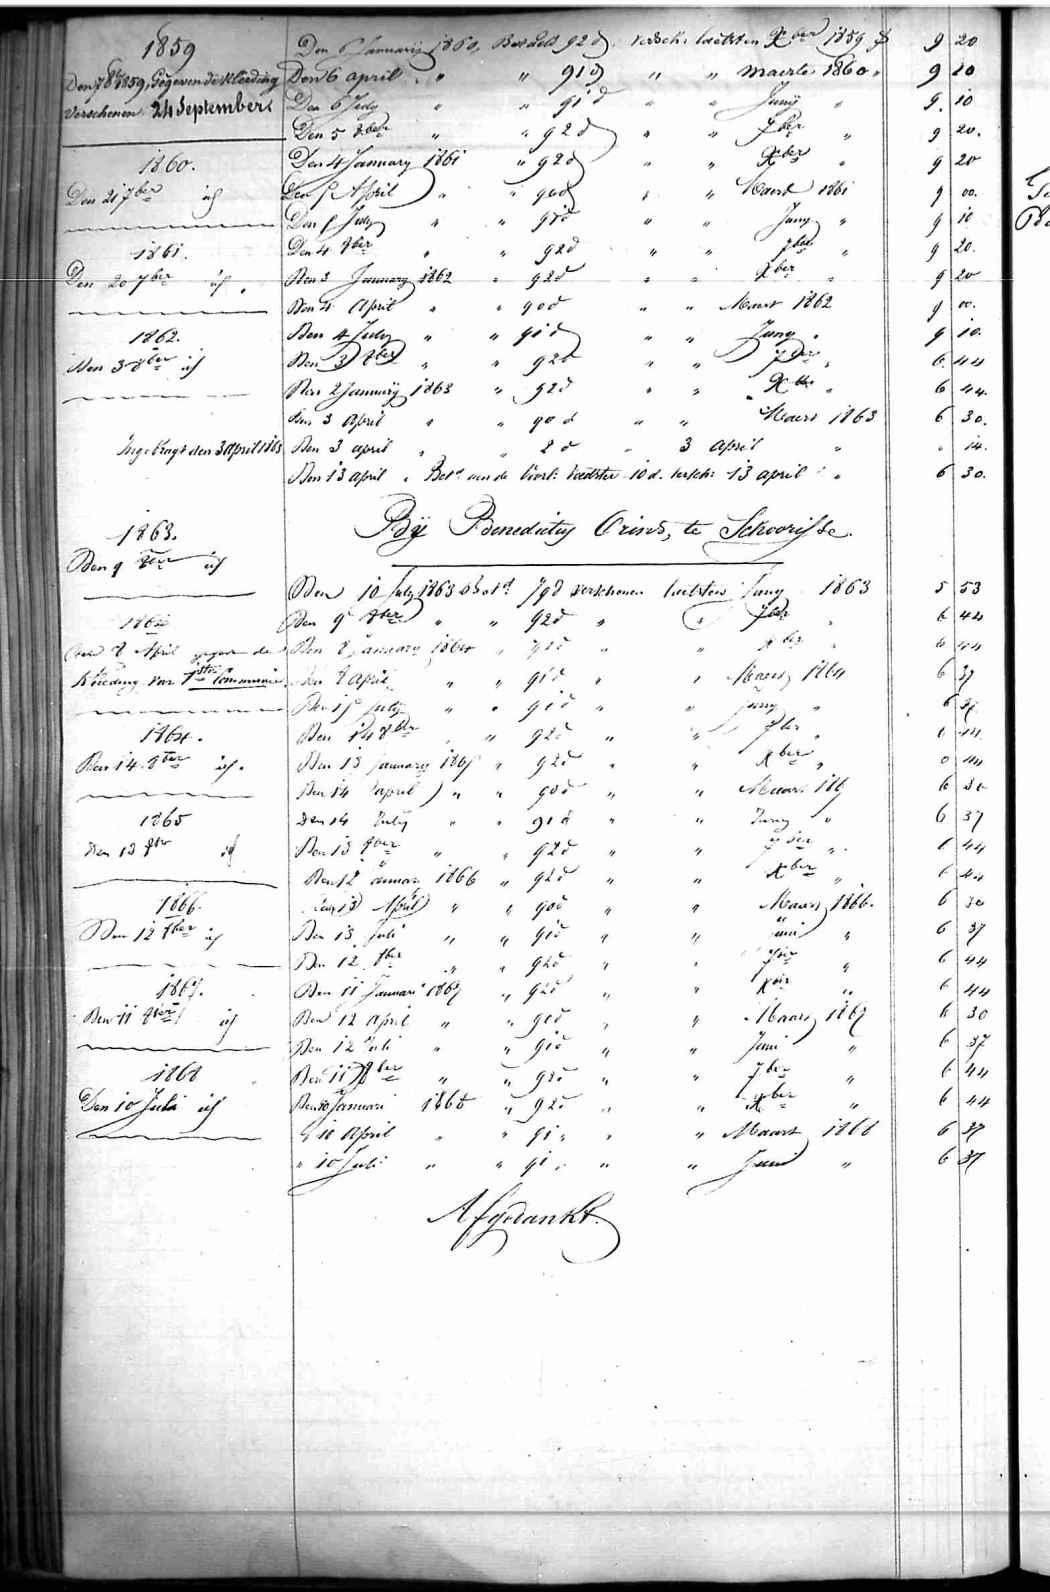 1859
Den 7 8ber 1859, gegeven de kleeding
verschenen 24 September
1860.
Den 21 7ber id
1861.
Den 20 7ber id
1862.
Den 3 8ber id
Ingebragt den 3 April 1863
1863.
Den 9 8ber id
1864
Den 8 April gegeven de
kleeding van 1ste Communie
1864.
Den 14 8ber id.
1865
Den 13 8ber id
1866.
Den 12 8ber id
1867.
Den 11 8ber id
1868
Den 10 Juli id
Den 6 Januarij 1860, Betaeld 92 d. versch. laetsten Xber 1859 f 9 20
Den 6 april " " 91 d " " Maerte 1860 " 9 10
Den 6 July " " 91 d " " Junij " 9. 10
Den 5 8ber " " 92 d " " 7ber " 9 20.
Den 4 January 1861 " 92 d " " Xber " 9 20
Den 5 April " " 90 d " " Maart 1861 9 00.
Den 5 July " " 91 d " " Juny " 9 10
Den 4 8ber " " 92 d " " 7ber " 9 20.
Den 3 January 1862 " 92 d " " Xber " 9 20
Den 4 April " " 90 d " " Maart 1862 9 00.
Den 4 July " " 91 d " " Juny " 9 10.
Den 3 8ber " " 92 d " " 7ber " 6. 44
Den 2 January 1863 " 92 d " " Xber " 6 44.
Den 3 April " " 90 d " " Maart 1863 6 30.
Den 3 april " " 2 d " 3 April " " 14.
Den 13 april " Bet.d aen de voorl: Voedster 10 d. versch: 13 april " 6 30.
By Benedictus Crins, te Schoorisse.
Den 10 July 1863 bet.d 79 d verschenen laetsten Juny 1863 5 53
Den 9 8ber " " 92 d " " 7ber " 6 44
Den 8 January 1864 " 92 d " " Xber " 6 44
Den 8 April " " 91 d " " Maart 1864 6 37
Den 15 July " " 91 d " " Juny " 6 37.
Den 14 8ber " " 92 d " " 7ber " 6 44.
Den 13 January 1865 " 92 d " " Xber " 6 44
Den 14 April " " 90 d " " Maart 1865 6 30
Den 14 July " " 91 d " " Juny " 6 37
Den 13 8ber " " 92 d " " 7ber " 6 44
Den 12 Januari 1866 " 92 d " " Xber " 6 44
Den 13 April " " 90 d " " Maart 1866. 6 30
Den 13 Juli " " 91 d " " Juni " 6 37
Den 12 8ber " " 92 d " " 7ber " 6 44
Den 11 Januari 1867 " 92 d " " Xber " 6 44
Den 12 April " " 90 d " " Maart 1867 6 30
Den 12 Juli " " 91 d " " Juni " 6 37
Den 11 8ber " " 92 d " " 7ber " 6 44
Den 10 Januari 1868 " 92 d " " Xber " 6 44
" 10 April " " 91 " " " Maart 1868 6 37
" 10 Juli " " 91 " " " Juni " 6 37
Afgedankt.